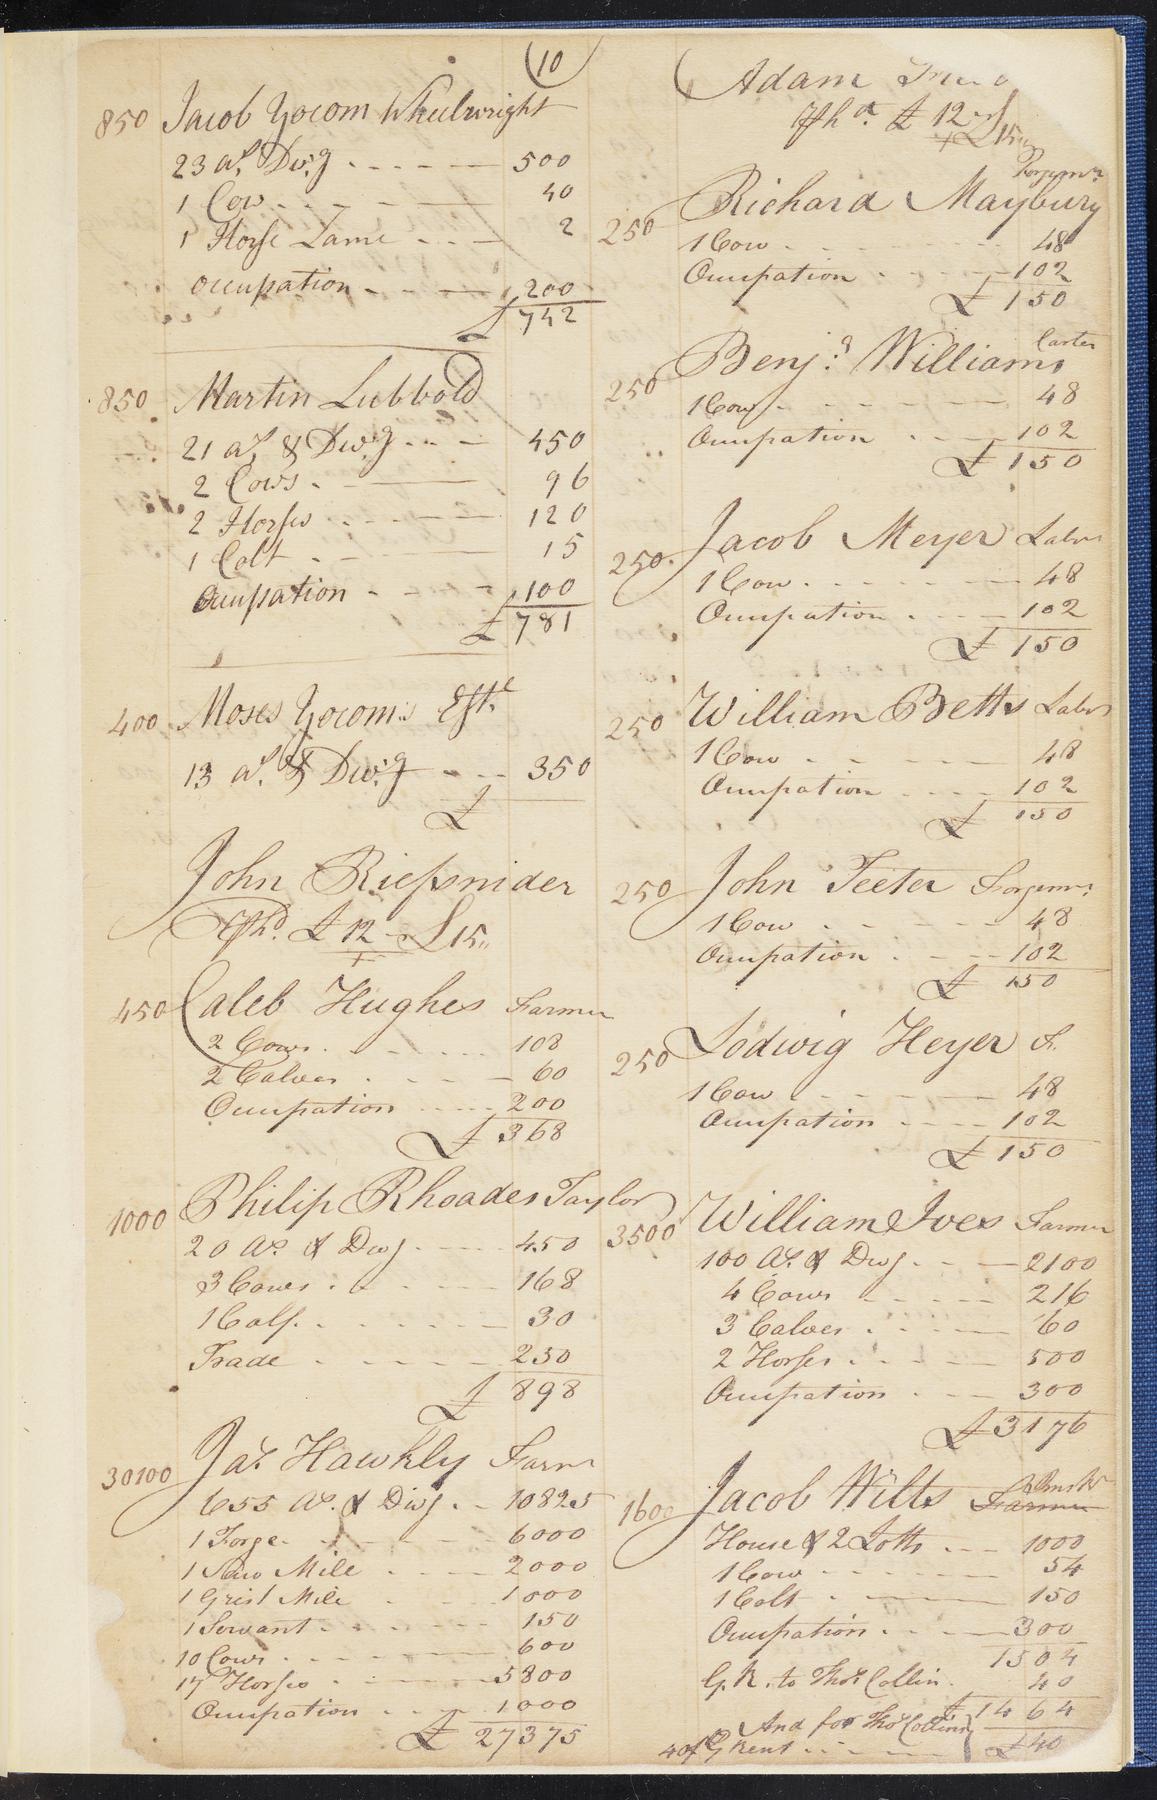 (10
850 Jacob Yocom Wheelwright
23 as. Dwg 500
1 Cow 40
1 Horse Lame 2
Occupation 200
£ 742
850 Martin Lubbold
21 as. & Dwg 450
2 Cows 96
2 Horses 120
1 Colt 15
Occupation 100
£ 781
400 Moses Yocom's Este
13 as. & Dwg 350
£
John Riefsnider
£ 12 £15
450 Caleb Hughes Farmer
2 Cows 108
2 Calves 60
Occupation 200
£ 368
1000 Philip Rhoades Taylor
20 as. & Dwg 450
3 Cows 168
1 Calf 30
Trade 250
£ 898
30100 Jas. Hawkly Farmr
655 as. & Dwg 10825
1 Forge 6000
1 Saw Mile 2000
1 Grist Mile 1000
1 Servant 150
10 Cows 600
17 Horses 5800
Occupation 1000
£ 27375
Adam
£ 12 £15
Forgemn
250 Richard Maybury
1 Cow 48
Occupation 102
£ 150
Carter
250 Benjn. Williams
1 Cow 48
Occupation 102
£ 150
250 Jacob Meyer Labr
1 Cow 48
Occupation 102
£ 150
250 William Betts Labr
1 Cow 48
Occupation 102
£ 150
250 John Teeter Forgemn
1 Cow 48
Occupation 102
£ 150
250 Lodwig Heyer F.
1 Cow 48
Occupation 102
£ 150
3500 William Ives Farmer
100 as. & Dwg 2100
4 Cows 216
3 Calves 60
2 Horses 500
Occupation 300
£ 3176
1600 Jacob Wilts Farmer
House & 2 Lotts 1000
1 Cow 54
1 Colt 150
Occupation 300
1504
G. R. to Thos. Collin 40
£ 1464
And for Thos Collins
40£ G Rent £ 40